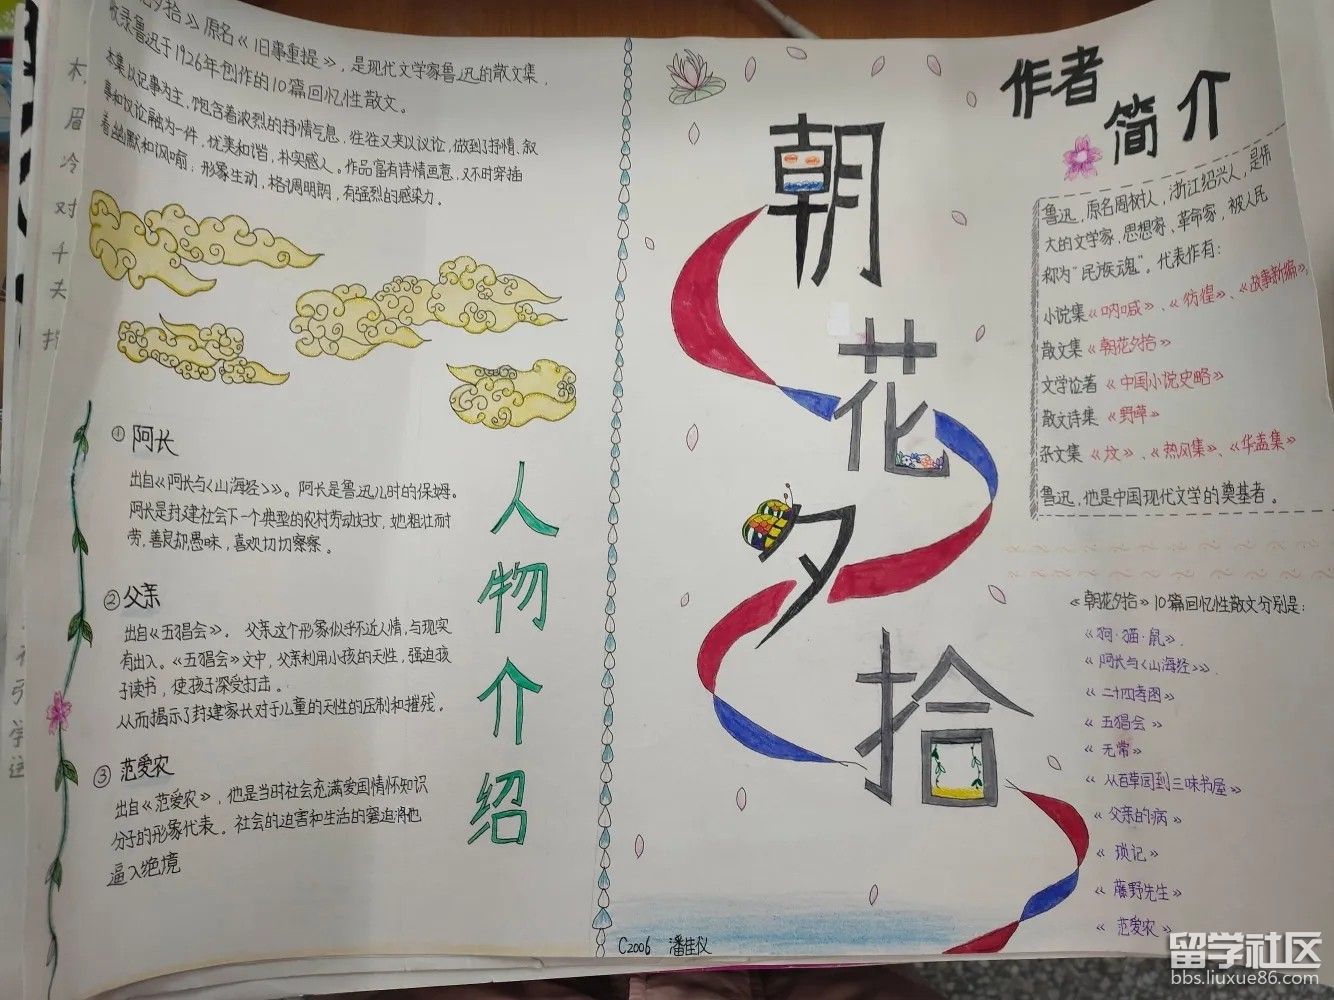 花夕拾》原名《旧事重提》，是现代文学家鲁迅的散文集，
收录鲁迅于1926年创作的10篇回忆性散文。
本集以记事为主，饱含着浓烈的抒情气息，往往又夹以议论，做到了抒情、叙
事和议论融为一件，优美和谐，朴实感人。作品富有诗情画意，又不时穿插
着幽默和讽喻；形象生动，格调明朗，有强烈的感染力。
①阿长
出自《阿长与〈山海经〉》。阿长是鲁迅儿时的保姆。
阿长是封建社会下一个典型的农村劳动妇女，她粗壮而耐
劳，善良却愚昧，喜欢切切察察。
②父亲
出自《五猖会》，父亲这个形象似乎不近人情，与现实
有出入。《五猖会》文中，父亲利用小孩的天性，强迫孩
子读书，使孩子深受打击。
从而揭示了封建家长对于儿童的天性的压制和摧残。
③范爱农
出自《范爱农》，他是当时社会充满爱国情怀知识
分子的形象代表。社会的迫害和生活的窘迫将他
逼入绝境
人物介绍
朝花夕拾
C2006 潘佳仪
作者简介
鲁迅，原名周树人，浙江绍兴人，是伟
大的文学家，思想家、革命家，被人民
称为"民族魂"。代表作有：
小说集《呐喊》、《彷徨》、《故事新编》，
散文集《朝花夕拾》
文学论著《中国小说史略》
散文诗集《野草》
杂文集《坟》、《热风集》、《华盖集》
鲁迅，他是中国现代文学的奠基者。
《朝花夕拾》10篇回忆性散文分别是：
《狗·猫·鼠》，
《阿长与〈山海经〉》，
《二十四孝图》
《五猖会》
《无常》
《从百草园到三味书屋》
《父亲的病》
《琐记》
《藤野先生》
《范爱农》
木
眉
冷
对
千
夫
指
引
学
留学社区
bbs.liuxue86.com